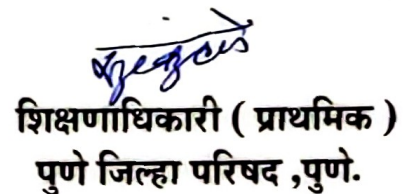 शिक्षणाधिकारी ( प्राथमिक )
पुणे जिल्हा परिषद ,पुणे.